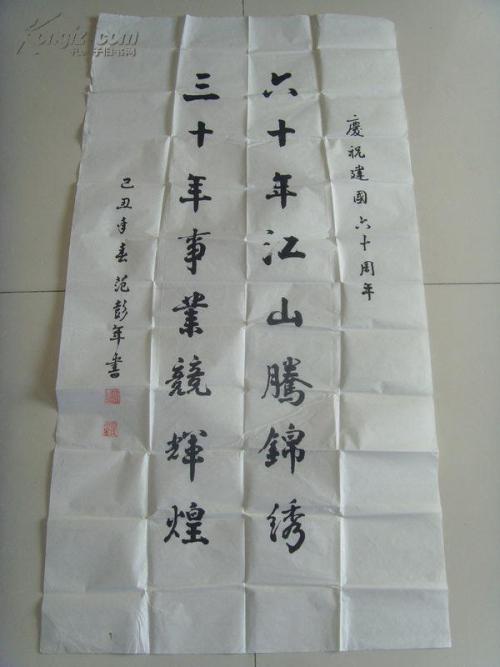 慶祝建國六十周年
六十年江山騰錦绣
三十年事業競輝煌
己丑年春范彭年書
kongfz.com
孔夫子旧书网